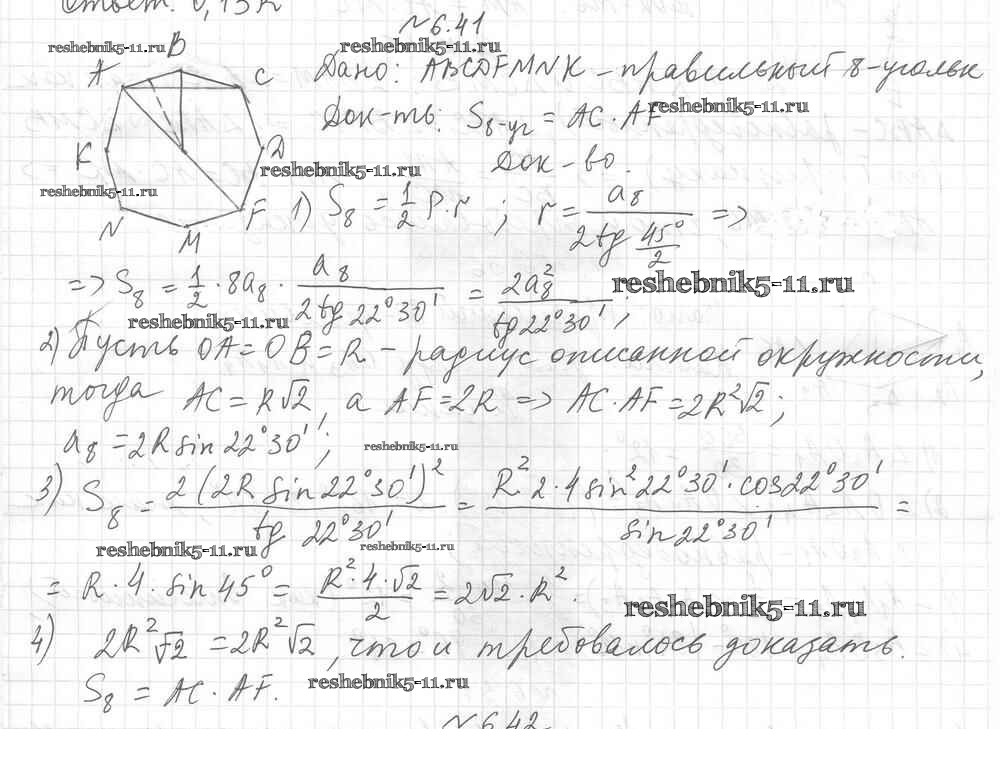 Ответ: 0,13R
№6.41
reshebnik5-11.ru B reshebnik5-11.ru
A C Дано: ABCDFMNK – правильный 8-угольн
reshebnik5-11.ru
Док-ть: S₈₋уг = AC · AF
K D Док-во.
reshebnik5-11.ru
reshebnik5-11.ru
N M F 1) S₈ = 1/2 P·r ; r = a₈ / (2 tg 45°/2) =>
=> S₈ = 1/2 · 8a₈ · a₈ / (2 tg 22°30') = 2a₈² / tg 22°30' ;
reshebnik5-11.ru
reshebnik5-11.ru
2) Пусть OA = OB = R – радиус описанной окружности,
тогда AC = R√2, а AF = 2R => AC·AF = 2R²√2;
a₈ = 2R sin 22°30';
reshebnik5-11.ru
3) S₈ = 2(2R sin 22°30')² / tg 22°30' = R²·2·4 sin² 22°30'·cos 22°30' / sin 22°30' =
reshebnik5-11.ru
reshebnik5-11.ru
= R·4·sin 45° = R²·4·√2 / 2 = 2√2·R².
reshebnik5-11.ru
4) 2R²√2 = 2R²√2, что и требовалось доказать.
S₈ = AC · AF.
reshebnik5-11.ru
№6.42.